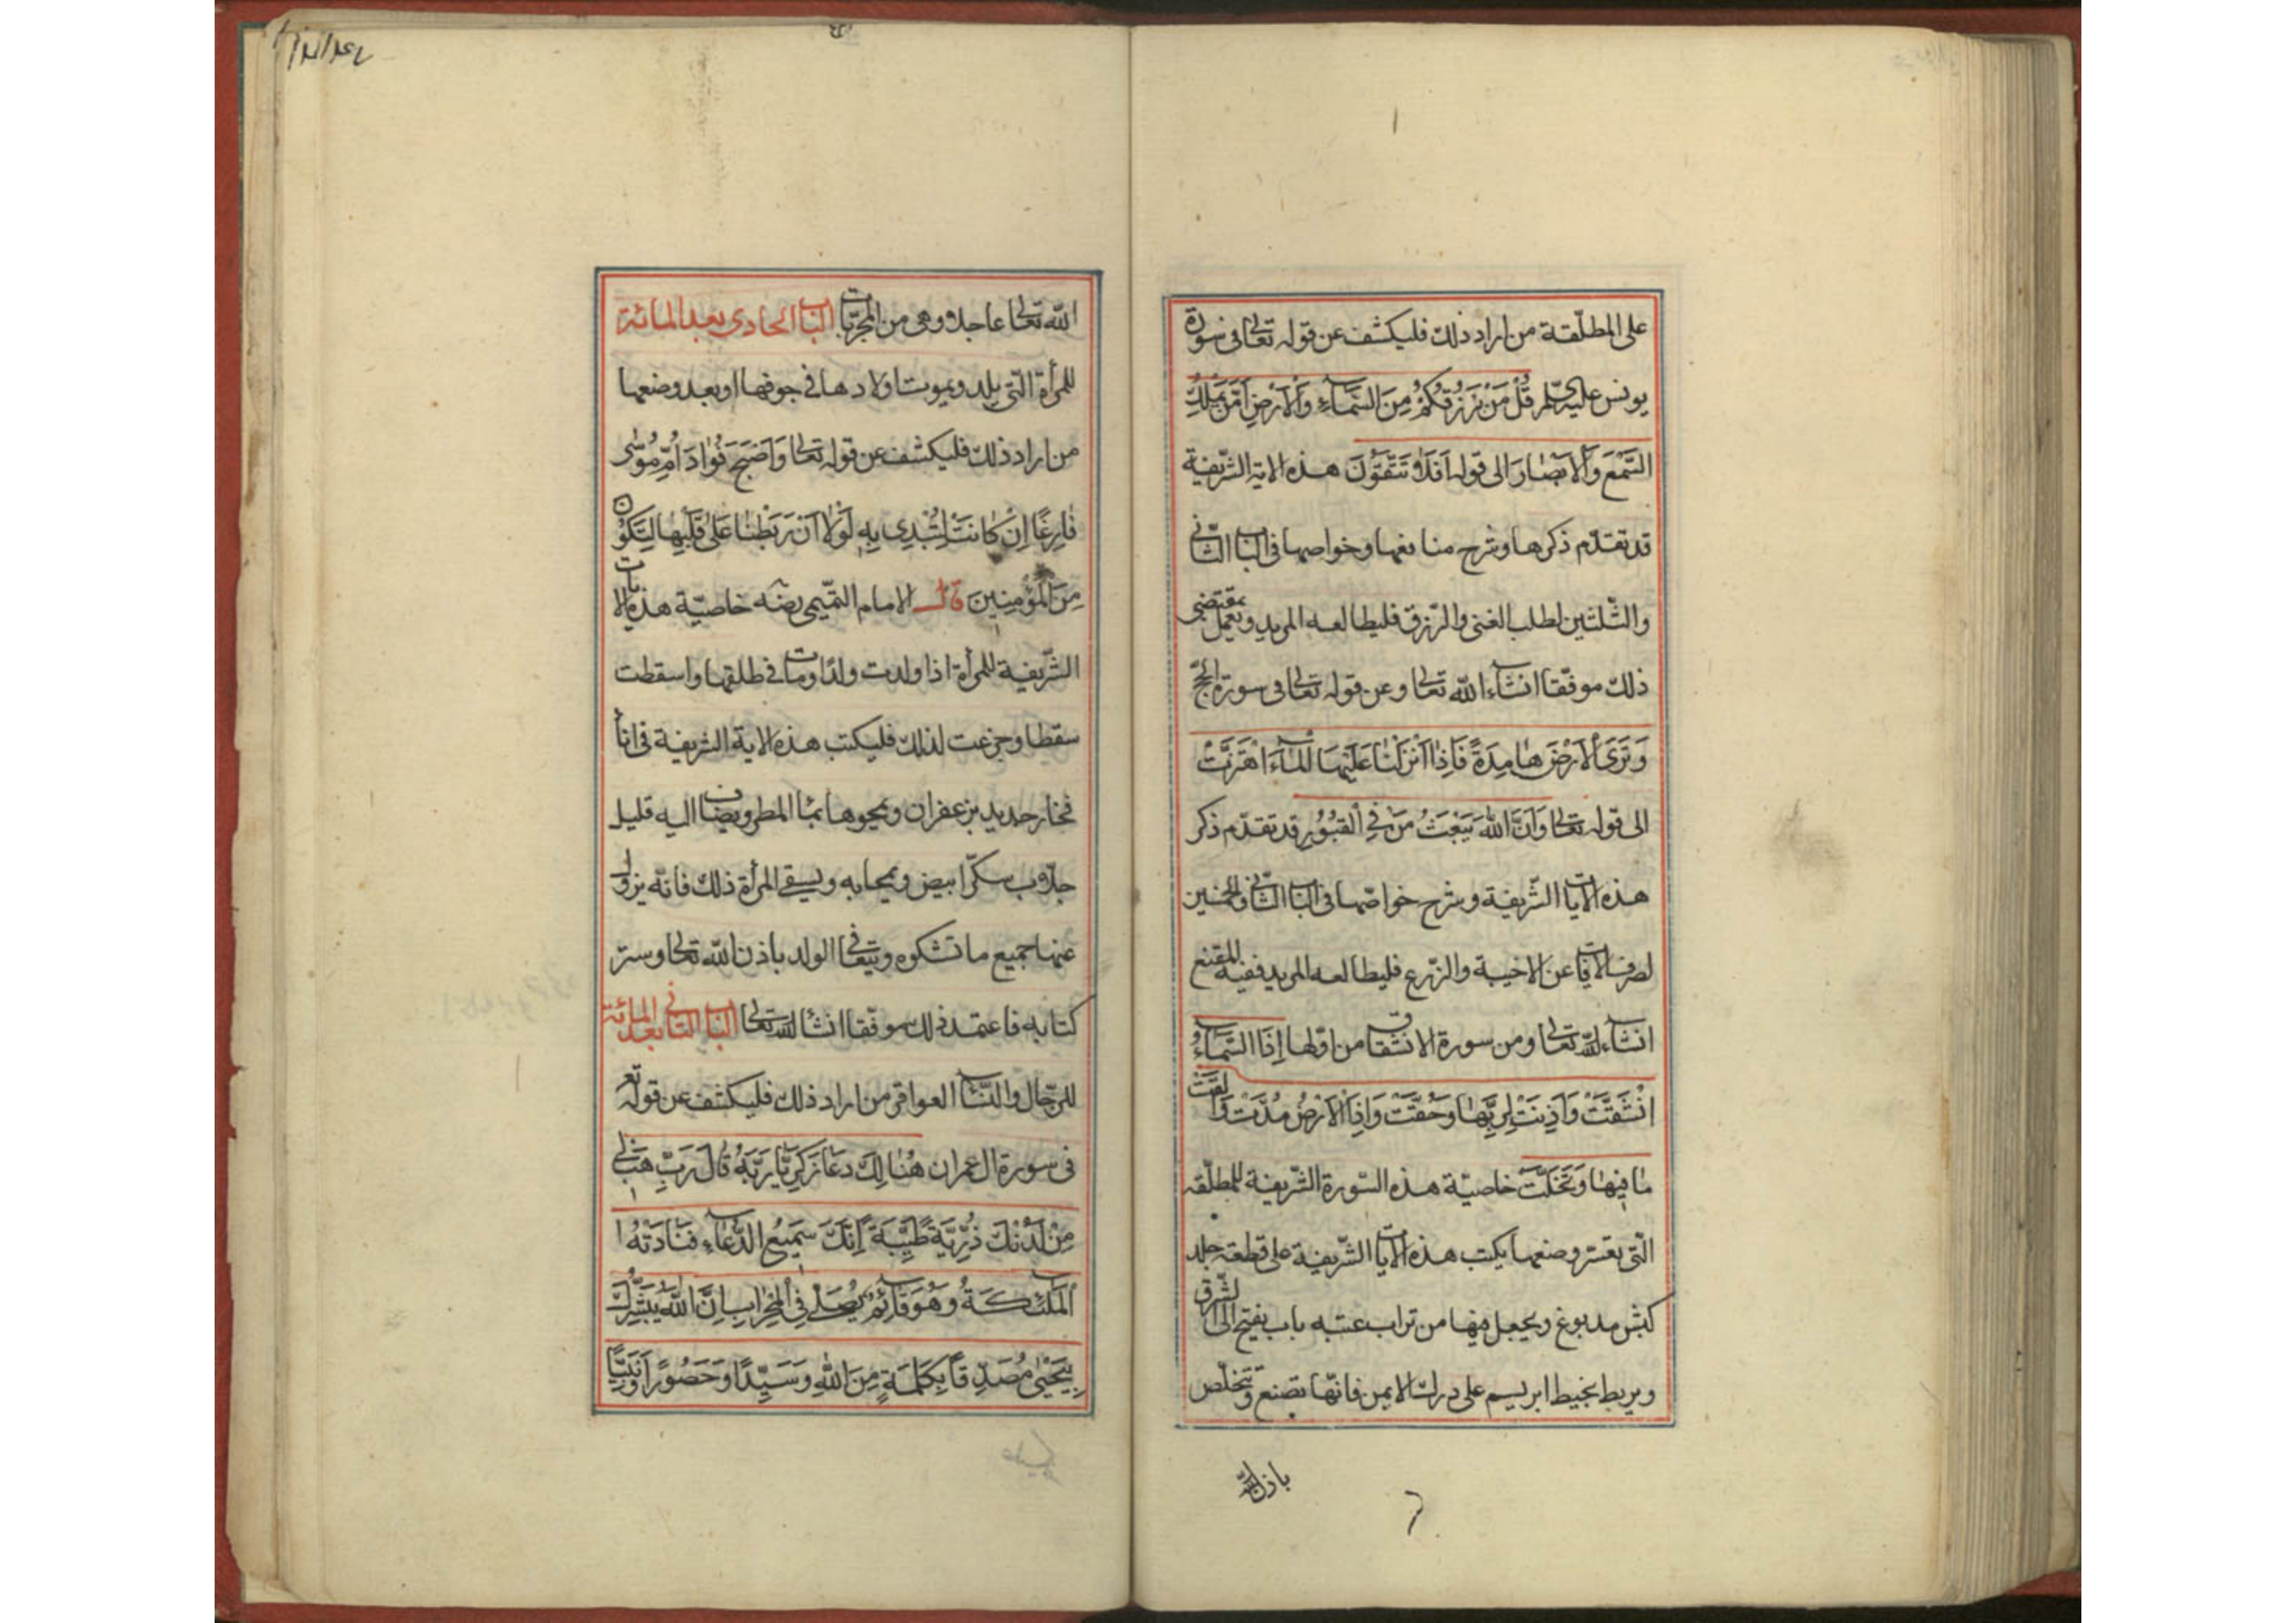 على المطلّقة من اراد ذلك فليكشف عن قوله تعالى فى سورة
يونس عليه السلم قُلْ مَنْ يَرْزُقُكُمْ مِنَ السَّمَاءِ وَالْاَرْضِ اَمَّنْ يَمْلِكُ
السَّمْعَ وَالْاَبْصَارَ الى قوله اَفَلَا تَتَّقُونَ هذه الاية الشّريفة
قد تقدّم ذكرها وشرح منافعها وخواصها فى الباب الثّانى
والثّلثين لطلب الغنى والرّزق فليطالعه المريد ويعمل بمقتضى
ذلك موفّقا انشاء الله تعالى وعن قوله تعالى فى سورة الحجّ
وَتَرَى الْاَرْضَ هَامِدَةً فَاِذَا اَنْزَلْنَا عَلَيْهَا الْمَاءَ اهْتَزَّتْ
الى قوله تعالى وَاَنَّ اللهَ يَبْعَثُ مَنْ فِي الْقُبُورِ قد تقدّم ذكر
هذه الايات الشّريفة وشرح خواصّها فى الباب الثّانى والخمسين
لصرف الافات عن الاخبية والزّرع فليطالعه المريد ففيه المقنع
انشاء الله تعالى ومن سورة الانشقاق من اوّلها اِذَا السَّمَاءُ
انْشَقَّتْ وَاَذِنَتْ لِرَبِّهَا وَحُقَّتْ وَاِذَا الْاَرْضُ مُدَّتْ وَاَلْقَتْ
مَا فِيهَا وَتَخَلَّتْ خاصيّة هذه السّورة الشّريفة للمطلّقه
الّتى تعسّر وضعها يكتب هذه الايات الشّريفة على قطعة جلد
كبش مدبوغ ويجعل فيها من تراب عتبه باب يفتح الى الشّرق
ويربط بخيط ابريسم على درك الايمن فانّها تضع وتتخلّص
باذن الله
الله تعالى عاجلا وهى من المجرّبات الباب الحادى بعد المائة
للمرأة الّتى يلد ويموت اولادها فى جوفها او بعد وضعها
من اراد ذلك فليكشف عن قوله تعالى وَاَصْبَحَ فُوَادُ اُمِّ مُوسٰى
فَارِغًا اِنْ كَانَتْ لَتُبْدِى بِهِ لَوْلَا اَنْ رَبَطْنَا عَلٰى قَلْبِهَا لِتَكُونَ
مِنَ الْمُؤْمِنِينَ قال الامام التّميمى رضه خاصيّة هذه الايات
الشّريفة للمرأة اذا ولدت ولدًا ومات فى طلقها واسقطت
سقطا وجزعت لذلك فليكتب هذه الاية الشريفة فى اناء
فخار جديد بزعفران ويمحوها بماء المطر ويضاف اليه قليل
جلّاب سكّر ابيض ويمحابه ويسقى المرأة ذلك فانّه يزول
عنها جميع ما تشكوه ويتعافى الولد باذن الله تعالى وستر
كتابه فاعتمد ذلك موفّقا انشا الله تعالى الباب الثانى بعد المائة
للرّجال والنّساء العواقر من اراد ذلك فليكشف عن قوله تع
فى سورة ال عمران هُنَالِكَ دَعَا زَكَرِيَّا رَبَّهُ قَالَ رَبِّ هَبْ لِى
مِنْ لَدُنْكَ ذُرِّيَّةً طَيِّبَةً اِنَّكَ سَمِيعُ الدُّعَاءِ فَنَادَتْهُ ا
الْمَلٰئِكَةُ وَهُوَ قَائِمٌ يُصَلِّى فِي الْمِحْرَابِ اِنَّ اللهَ يُبَشِّرُكَ
بِيَحْيٰى مُصَدِّقًا بِكَلِمَةٍ مِنَ اللهِ وَسَيِّدًا وَحَصُورًا وَنَبِيًّا